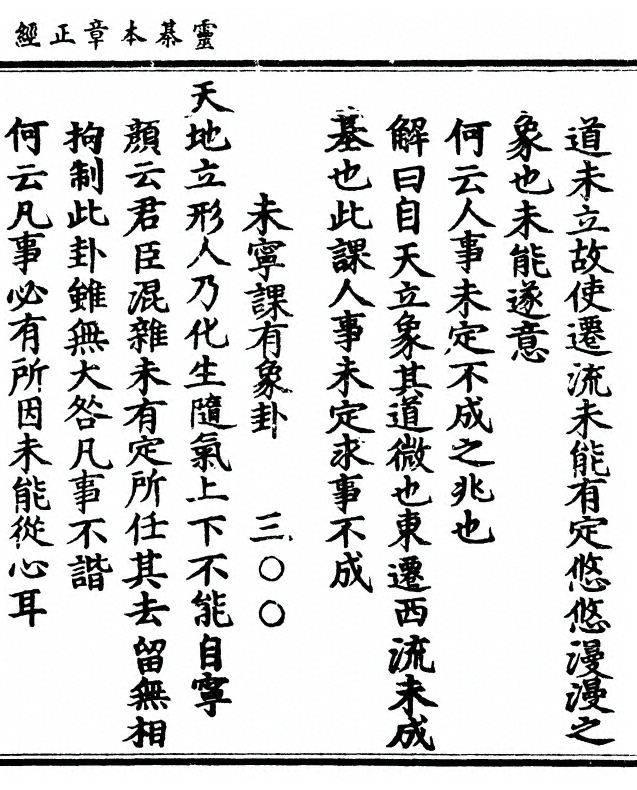 靈棊本章正經
道未立故使遷流未能有定悠悠漫漫之
象也未能遂意
何云人事未定不成之兆也
解曰自天立象其道微也東遷西流未成
基也此課人事未定求事不成
未寧課有象卦 三〇〇
天地立形人乃化生隨氣上下不能自寧
顏云君臣混雜未有定所任其去留無相
拘制此卦雖無大咎凡事不諧
何云凡事必有所因未能從心耳